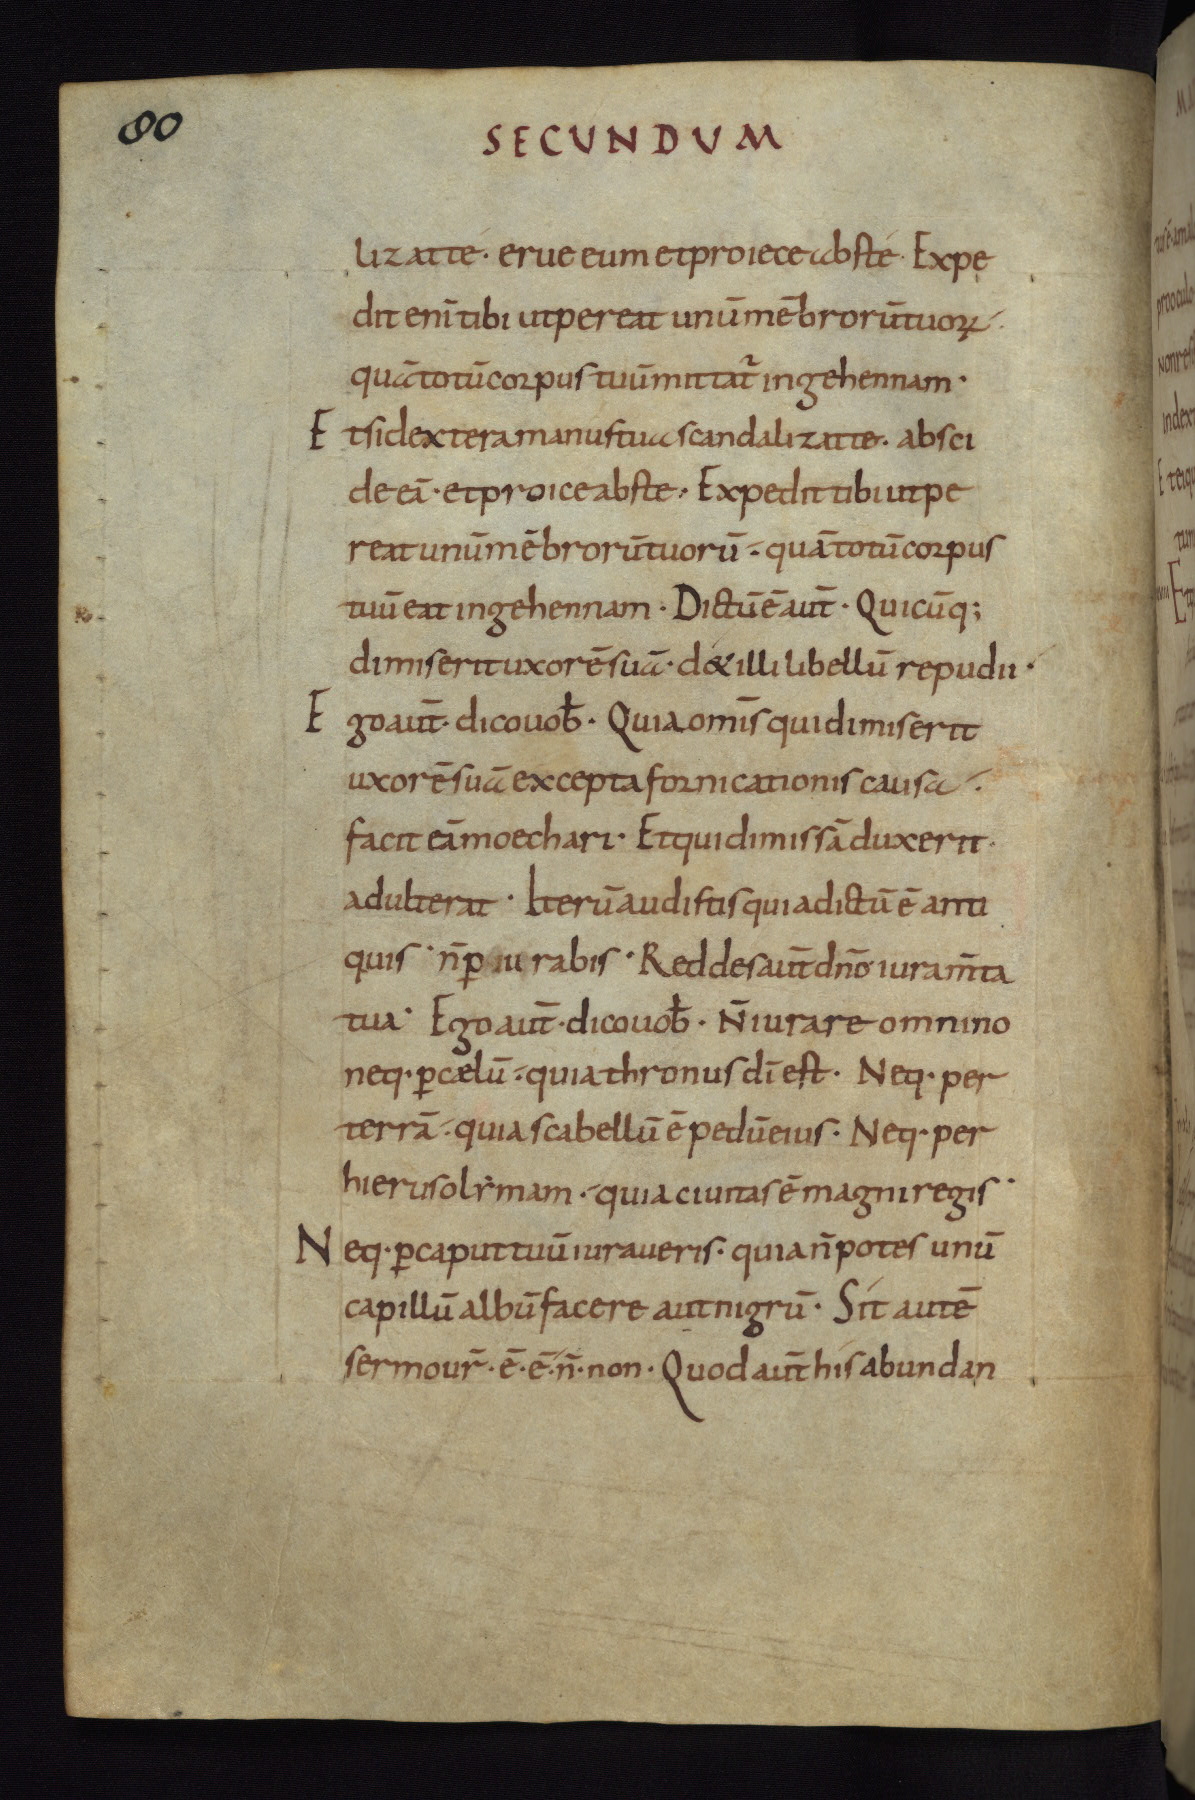 80
SECUNDUM
lizat te· erue eum et proiece abs te· Expe
dit enī tibi ut pereat unū mēbrorū tuoꝝ·
quā totū corpus tuū mittat᷑ in gehennam·
Et si dextera manus tua scandalizat te· absci
de eā· et proice abs te· Expedit tibi ut pe
reat unū mēbrorū tuorū· quā totū corpus
tuū eat in gehennam· Dictū ē aut̄· Quicūq;
dimiserit uxorē suā· det illi libellū repudii·
Ego aut̄· dico uob̄· Quia omīs qui dimiserit
uxorē suā excepta fornicationis causa·
facit eā moechari· Et qui dimissā duxerit·
adulterat· Iterū audistis quia dictū ē anti
quis· n̄ ꝑiurabis· Reddes aut̄ dn̄o iuram̄ta
tua· Ego aut̄· dico uob̄· N̄ iurare omnino
neq· ꝑ cælū· quia thronus dī est· Neq· per
terrā· quia scabellū ē pedū eius· Neq· per
hierusolymam· quia ciuitas ē magni regis·
Neq· ꝑ caput tuū iuraueris· quia n̄ potes unū
capillū albū facere aut nigrū· Sit autē
sermo ur̄· ē· ē· n̄· non· Quod aut̄ his abundan